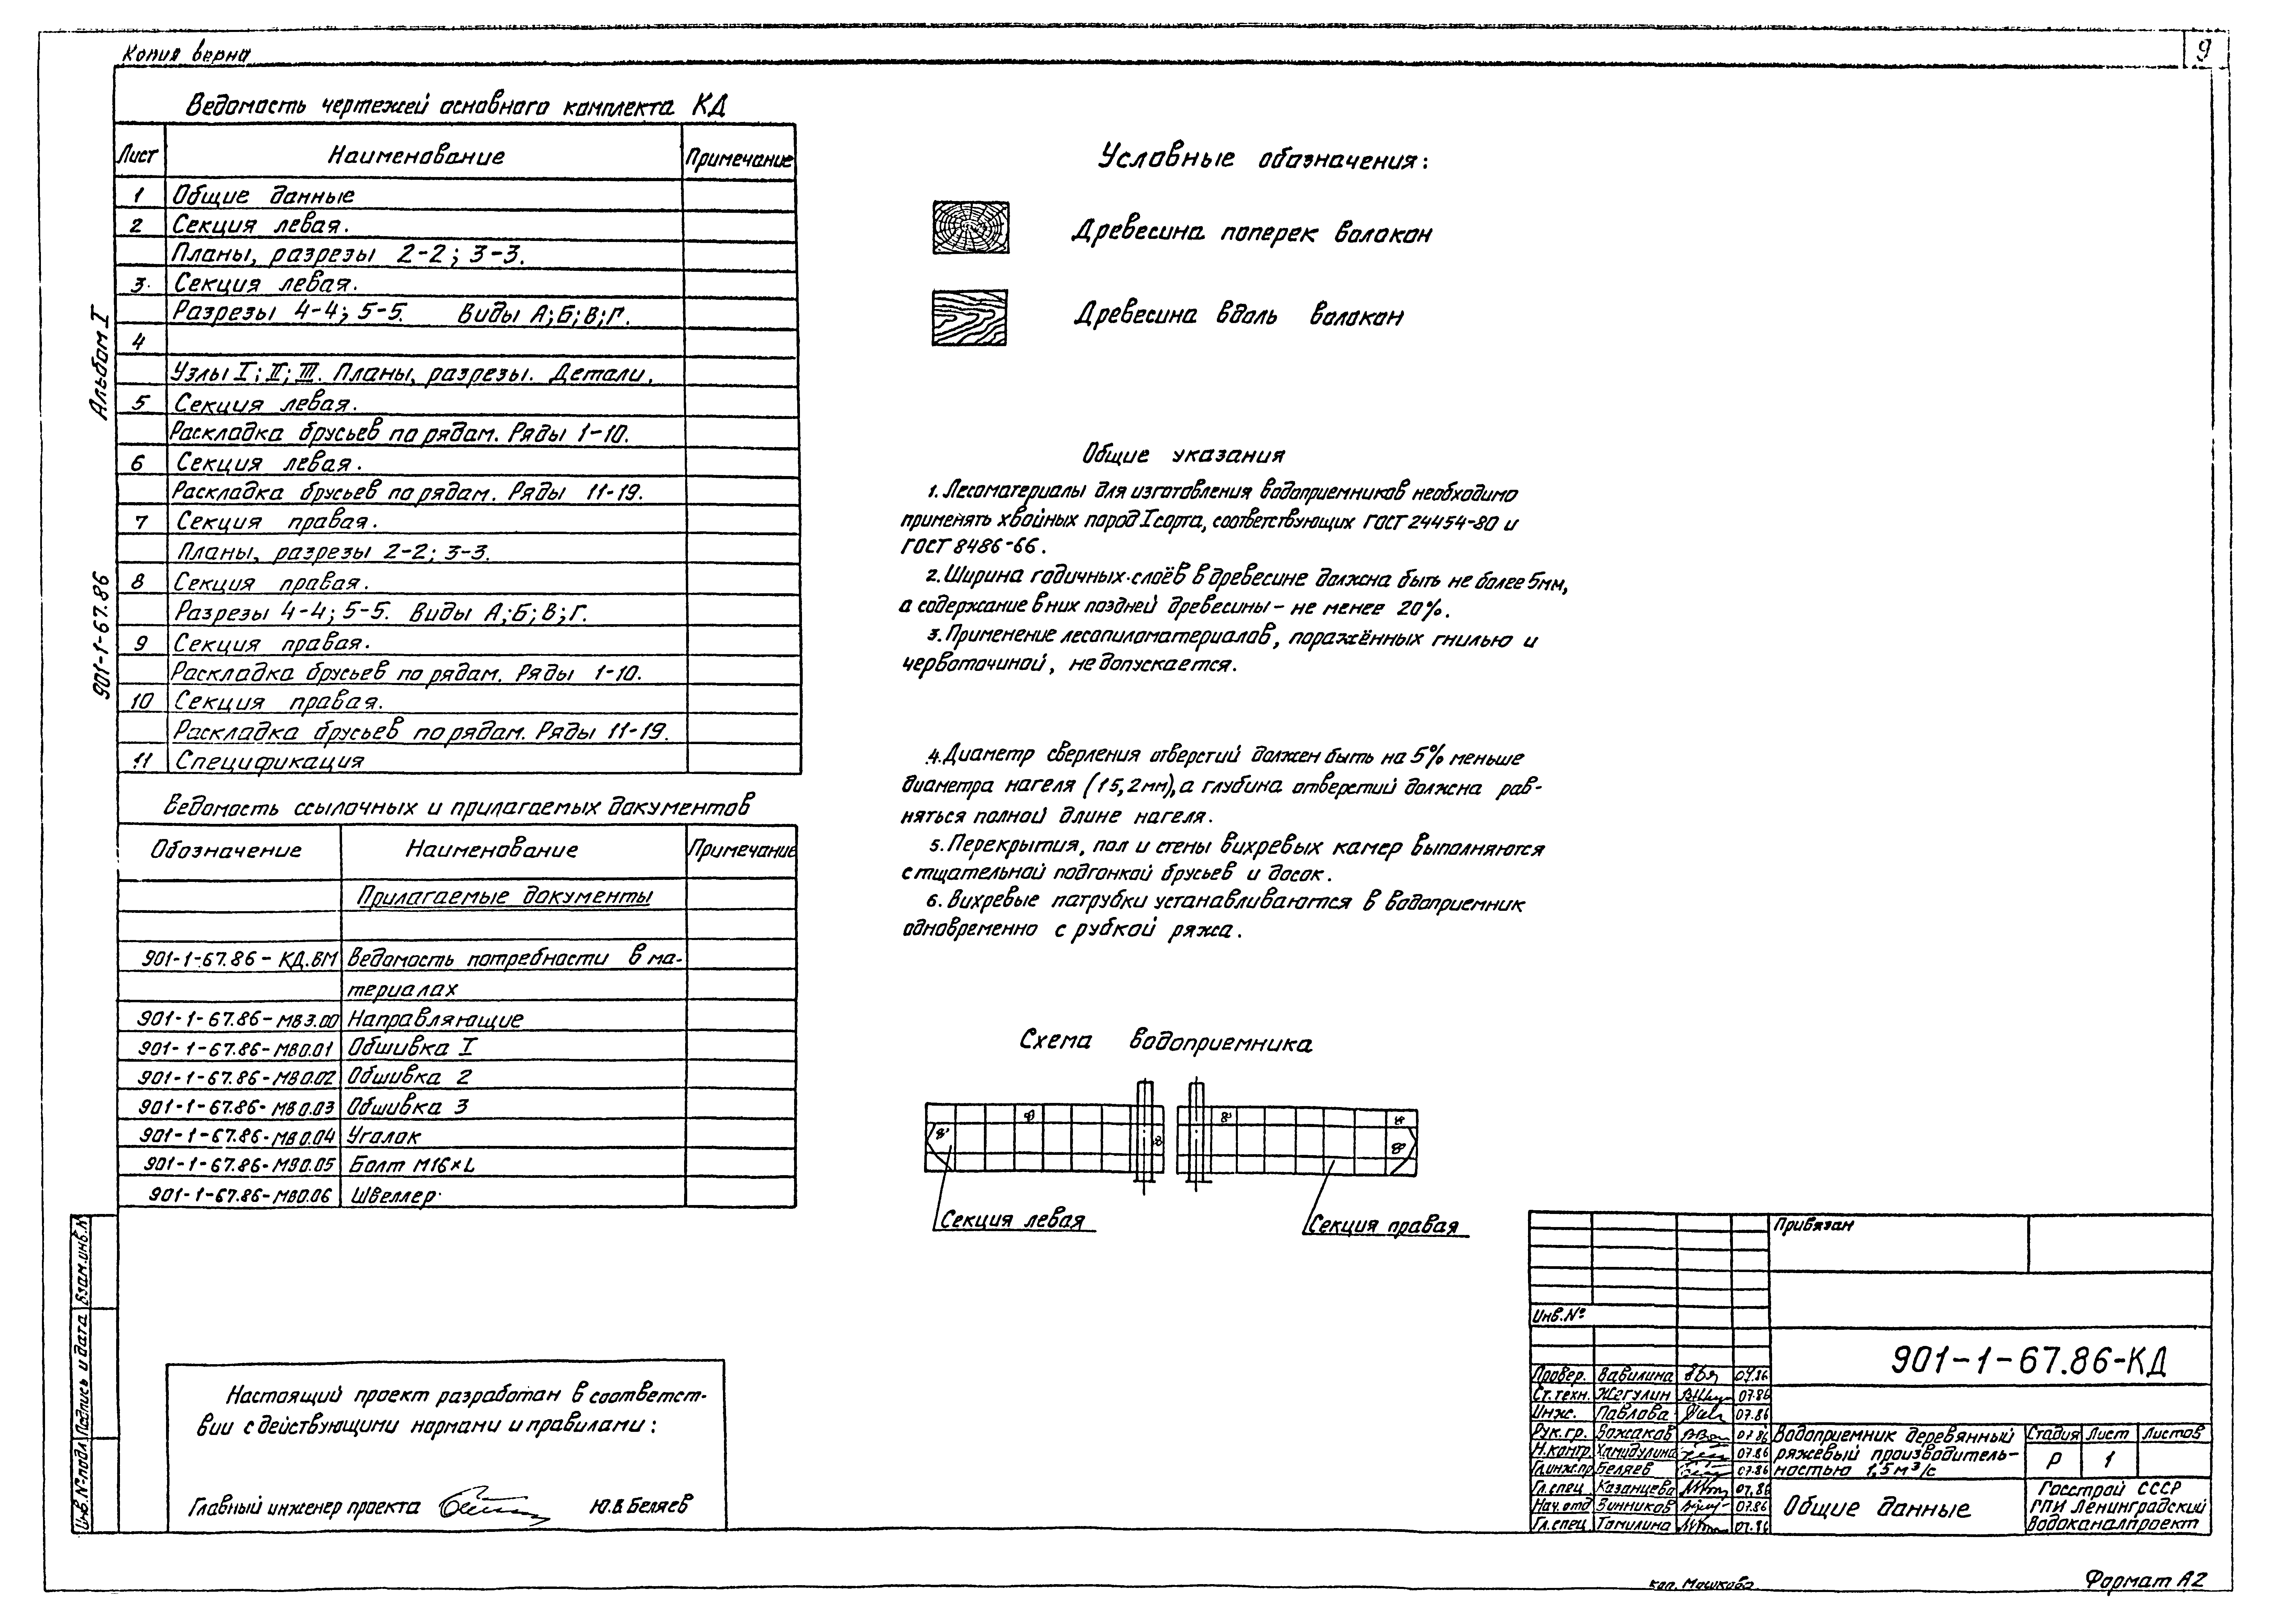 Копия верна
9
Ведомость чертежей основного комплекта КД
Лист Наименование Примечание
1 Общие данные
2 Секция левая.
Планы, разрезы 2-2; 3-3.
3 Секция левая.
Разрезы 4-4; 5-5. Виды А; Б; В; Г.
4
Узлы I; II; III. Планы, разрезы. Детали.
5 Секция левая.
Раскладка брусьев по рядам. Ряды 1-10.
6 Секция левая.
Раскладка брусьев по рядам. Ряды 11-19.
7 Секция правая.
Планы, разрезы 2-2; 3-3.
8 Секция правая.
Разрезы 4-4; 5-5. Виды А; Б; В; Г.
9 Секция правая.
Раскладка брусьев по рядам. Ряды 1-10.
10 Секция правая.
Раскладка брусьев по рядам. Ряды 11-19.
11 Спецификация
Ведомость ссылочных и прилагаемых документов
Обозначение Наименование Примечание
Прилагаемые документы
901-1-67.86-КД.ВМ Ведомость потребности в ма-
териалах
901-1-67.86-МВ3.00 Направляющие
901-1-67.86-МВ0.01 Обшивка I
901-1-67.86-МВ0.02 Обшивка 2
901-1-67.86-МВ0.03 Обшивка 3
901-1-67.86-МВ0.04 Уголок
901-1-67.86-МВ0.05 Болт М16×L
901-1-67.86-МВ0.06 Швеллер
Альбом I
901-1-67.86
Условные обозначения:
Древесина поперек волокон
Древесина вдоль волокон
Общие указания
1. Лесоматериалы для изготовления водоприемников необходимо
применять хвойных пород I сорта, соответствующих ГОСТ 24454-80 и
ГОСТ 8486-66.
2. Ширина годичных слоёв в древесине должна быть не более 5мм,
а содержание в них поздней древесины – не менее 20%.
3. Применение лесопиломатериалов, поражённых гнилью и
червоточиной, не допускается.
4. Диаметр сверления отверстий должен быть на 5% меньше
диаметра нагеля (15,2мм), а глубина отверстий должна рав-
няться полной длине нагеля.
5. Перекрытия, пол и стены вихревых камер выполняются
с тщательной подгонкой брусьев и досок.
6. Вихревые патрубки устанавливаются в водоприемник
одновременно с рубкой ряжа.
Схема водоприемника
Секция левая
Секция правая
Настоящий проект разработан в соответст-
вии с действующими нормами и правилами:
Главный инженер проекта Ю.В. Беляев
Инв.№ подл. Подпись и дата Взам.инв.№
Привязан
Инв.№
901-1-67.86-КД
Провер. Вавилина
Ст.техн. Жегулин 07.86
Инж. Павлова 07.86
Рук.гр. Божаков 07.86
Н.контр. Хамидулина 07.86
Гл.инж.пр. Беляев 07.86
Гл.спец. Казанцева 07.86
Нач.отд Винников 07.86
Гл.спец Томилина 07.86
Водоприемник деревянный
ряжевый производитель-
ностью 1,5 м³/с
Стадия Лист Листов
Р 1
Общие данные
Госстрой СССР
ГПИ Ленинградский
Водоканалпроект
коп. Мошкова
Формат А2